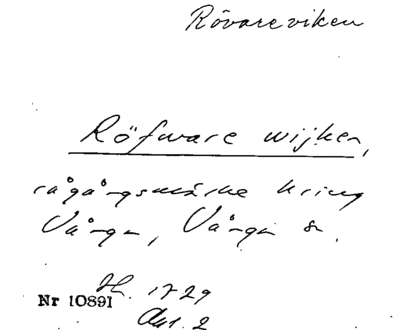 Rövareviken
Röfware wijken,
rågångsmärke kring
Vånga, Vånga sn.
Nr 10891 Hl. 1729
Akt. 2